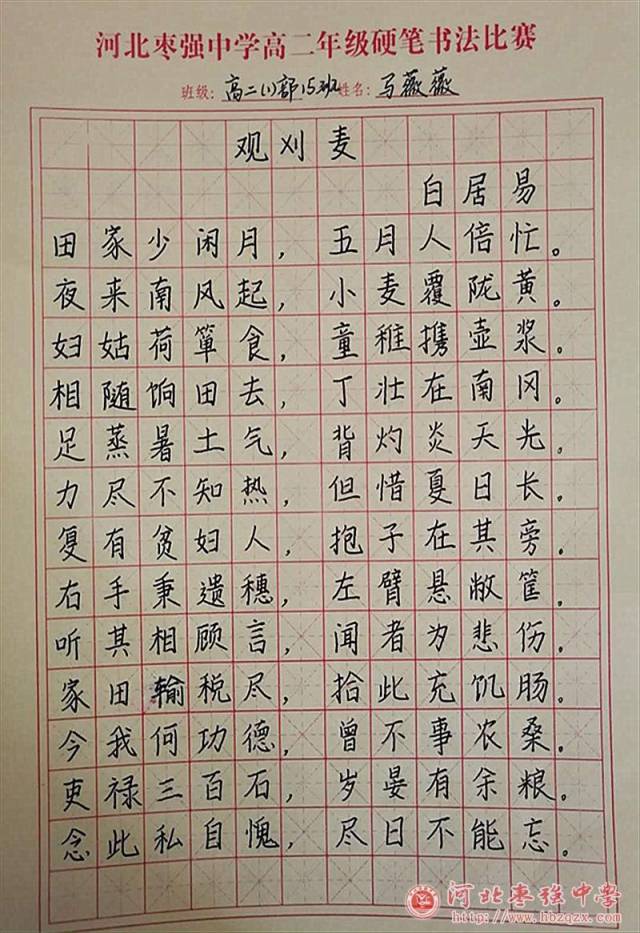 河北枣强中学高二年级硬笔书法比赛
班级：高二(1)部15班 姓名：马薇薇
观刈麦
白居易
田家少闲月，五月人倍忙。
夜来南风起，小麦覆陇黄。
妇姑荷箪食，童稚携壶浆。
相随饷田去，丁壮在南冈。
足蒸暑土气，背灼炎天光。
力尽不知热，但惜夏日长。
复有贫妇人，抱子在其旁。
右手秉遗穗，左臂悬敝筐。
听其相顾言，闻者为悲伤。
家田输税尽，拾此充饥肠。
今我何功德，曾不事农桑。
吏禄三百石，岁晏有余粮。
念此私自愧，尽日不能忘。
河北枣强中學
http://www.hbzqzx.com